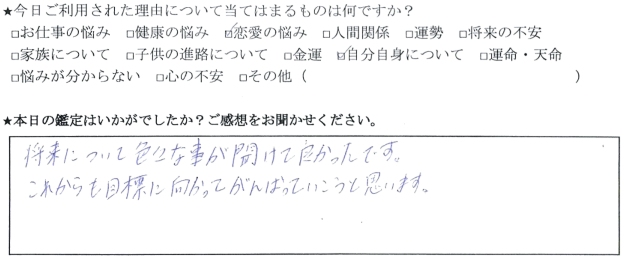 ★今日ご利用された理由について当てはまるものは何ですか？
□お仕事の悩み □健康の悩み ☑恋愛の悩み □人間関係 □運勢 □将来の不安
□家族について □子供の進路について □金運 ☑自分自身について □運命・天命
□悩みが分からない □心の不安 □その他（ ）
★本日の鑑定はいかがでしたか？ご感想をお聞かせください。
将来について色々な事が聞けて良かったです。
これからも目標に向かってがんばっていこうと思います。